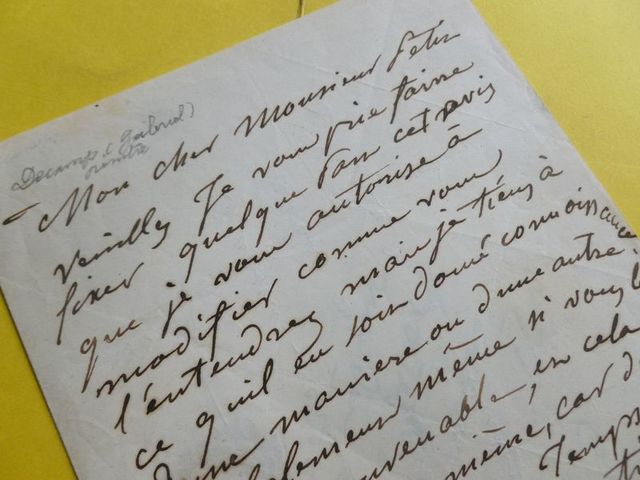 Decamps (Gabriel)
peintre
Mon cher Monsieur Petis
veuillez Je vous prie faire
fixer quelque part cet avis
que je vous autorise à
modifier comme vous
l'entendrez mais je tiens à
ce quil en soit donné connoissance
d'une maniere ou d'une autre.
même si vous l
venable, en cela
même, car d
Temps